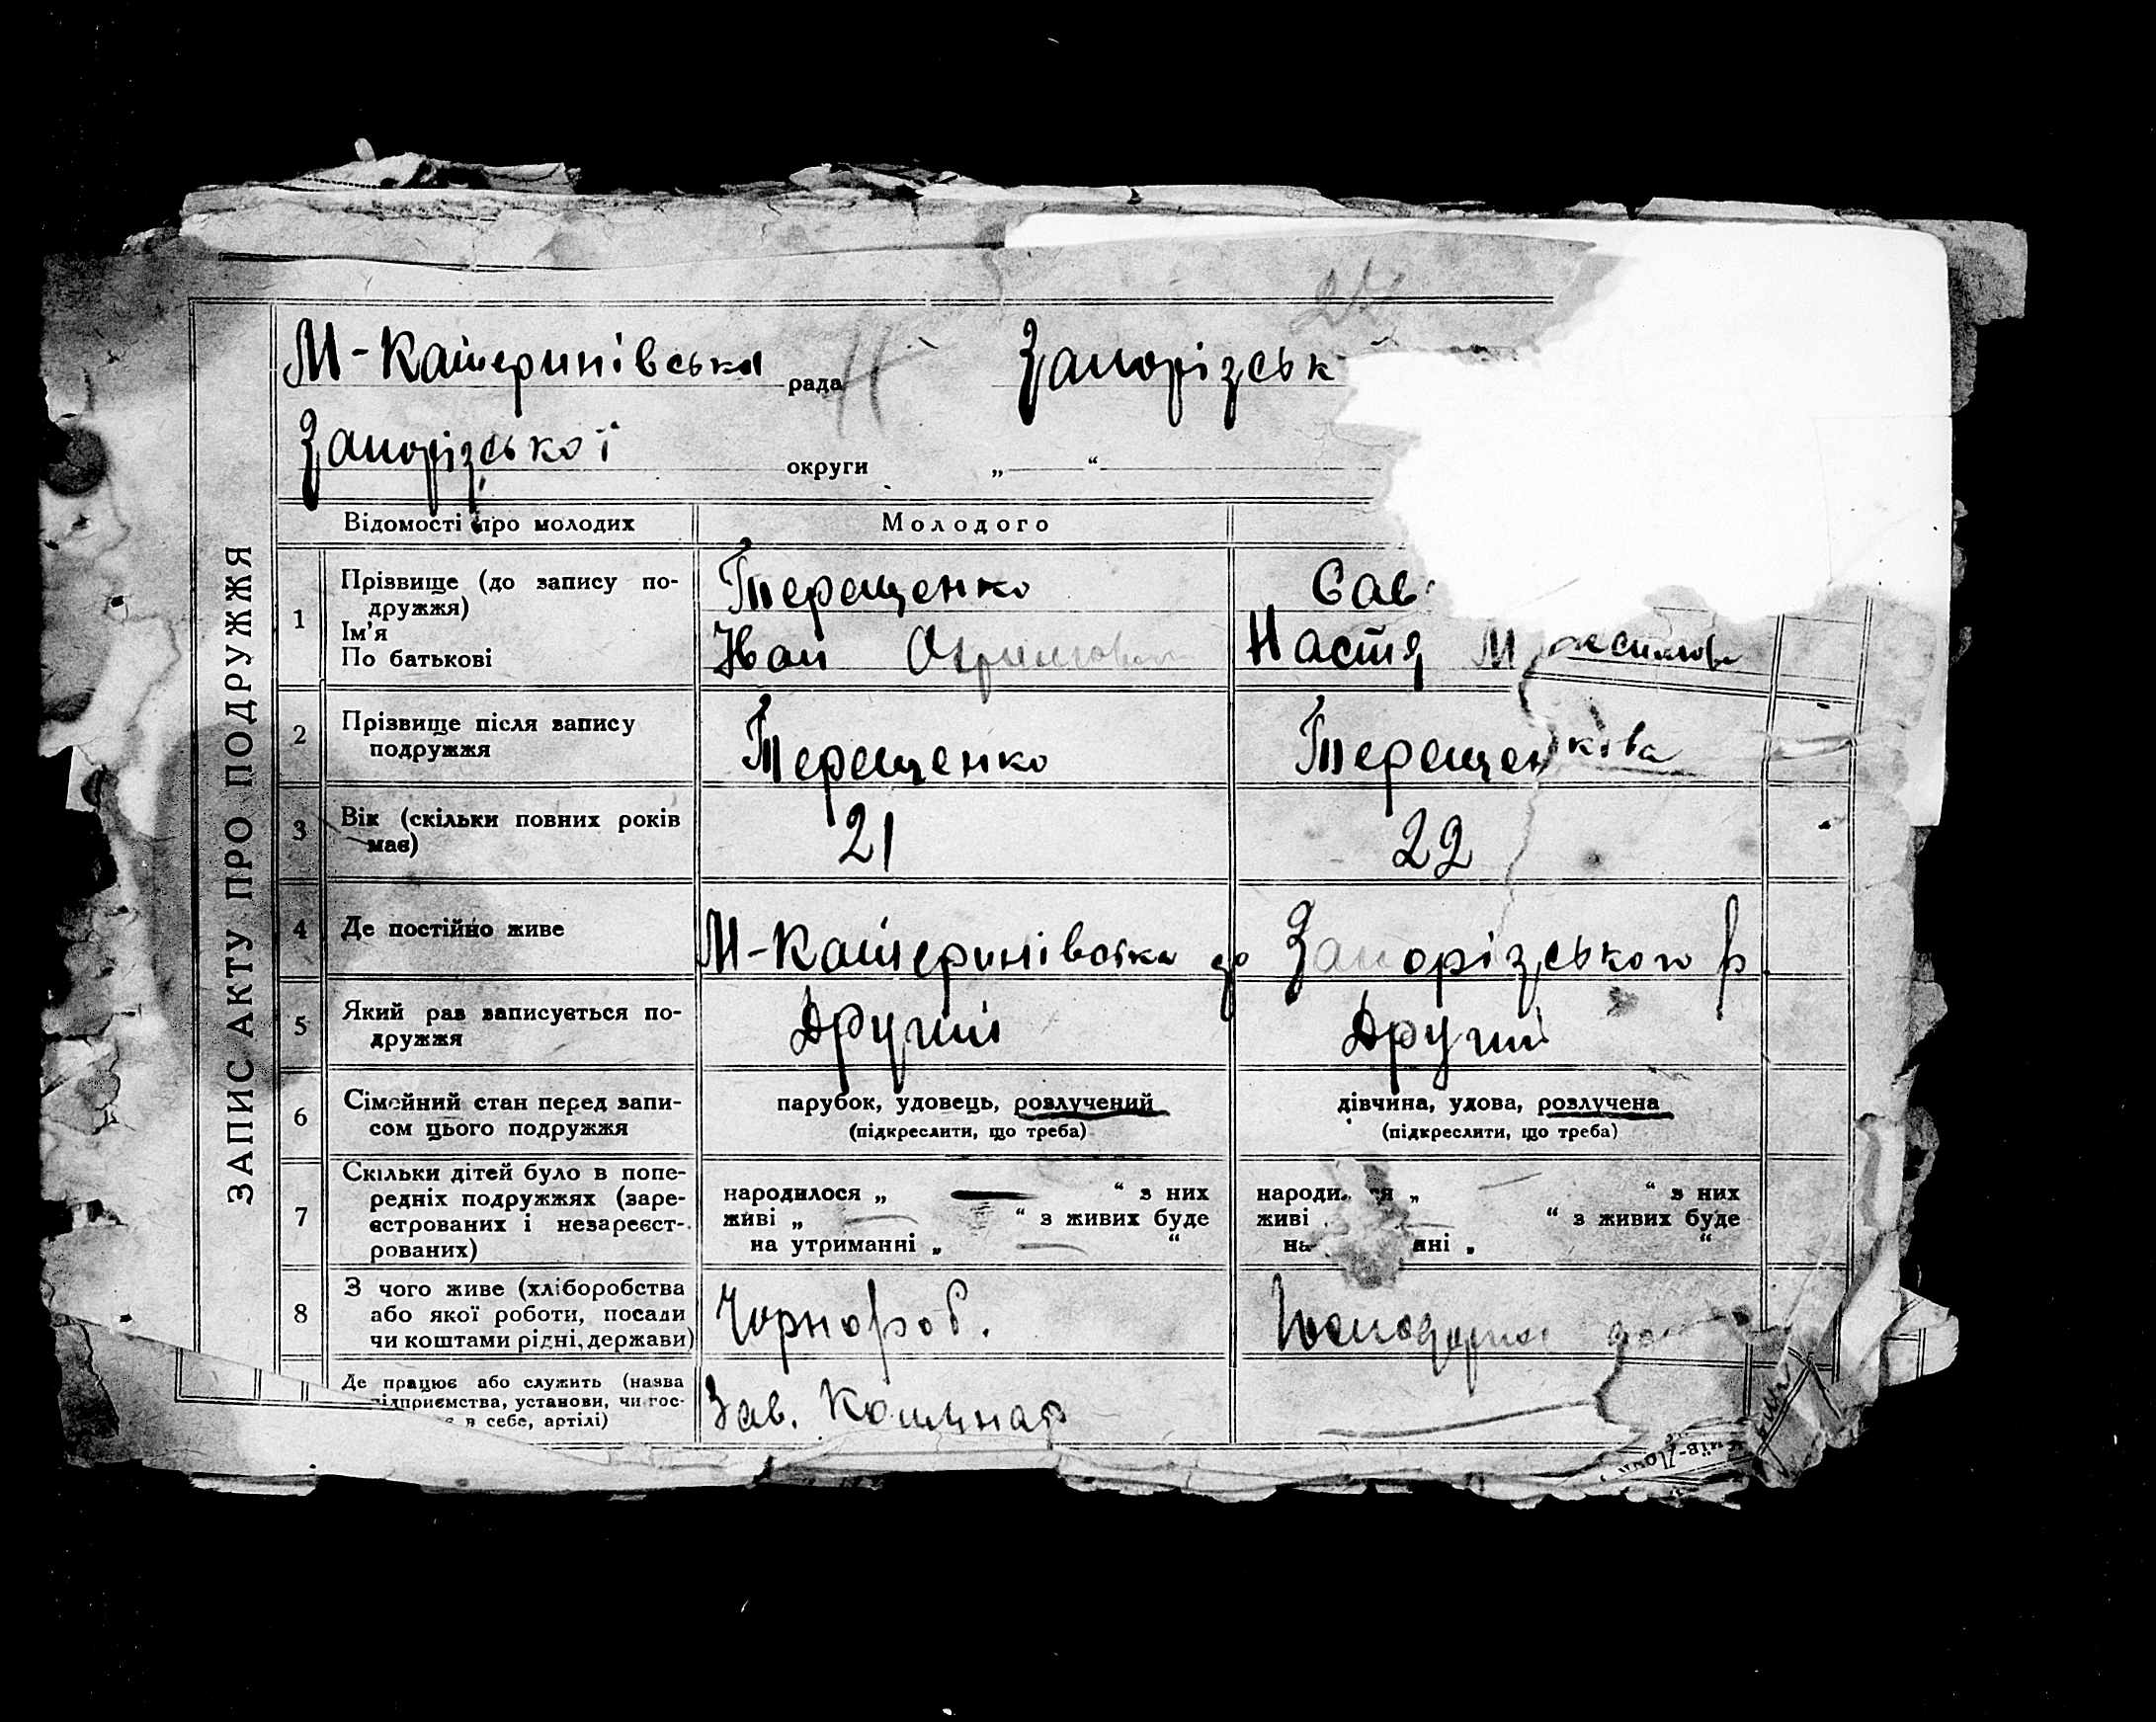 ЗАПИС АКТУ ПРО ПОДРУЖЖЯ
М-Катеринівська рада Запорізськ
Запорізської округи „ “
Відомості про молодих Молодого
1 Прізвище (до запису по-
дружжя)
Ім'я
По батькові
Терещенко
Іван
Сав
Настя
2 Прізвище після запису
подружжя
Терещенко
Терещенкова
3 Вік (скільки повних років
має)
21
22
4 Де постійно живе
М-Катеринівська Запорізського р
5 Який раз записується по-
дружжя
Другий
Другий
6 Сімейний стан перед запи-
сом цього подружжя
парубок, удовець, розлучений
(підкреслити, що треба)
дівчина, удова, розлучена
(підкреслити, що треба)
7 Скільки дітей було в попе-
редніх подружжях (заре-
єстрованих і незареєст-
рованих)
народилося „ — “ з них
живі „ — “ з живих буде
на утриманні „ — “
народи ся „ “ з них
живі “ з живих буде
на нні „ “
8 З чого живе (хліборобства
або якої роботи, посади
чи коштами рідні, держави)
Чорнороб.
Де працює або служить (назва
підприємства, установи, чи гос-
є в себе, артілі)
Зав. Комунар